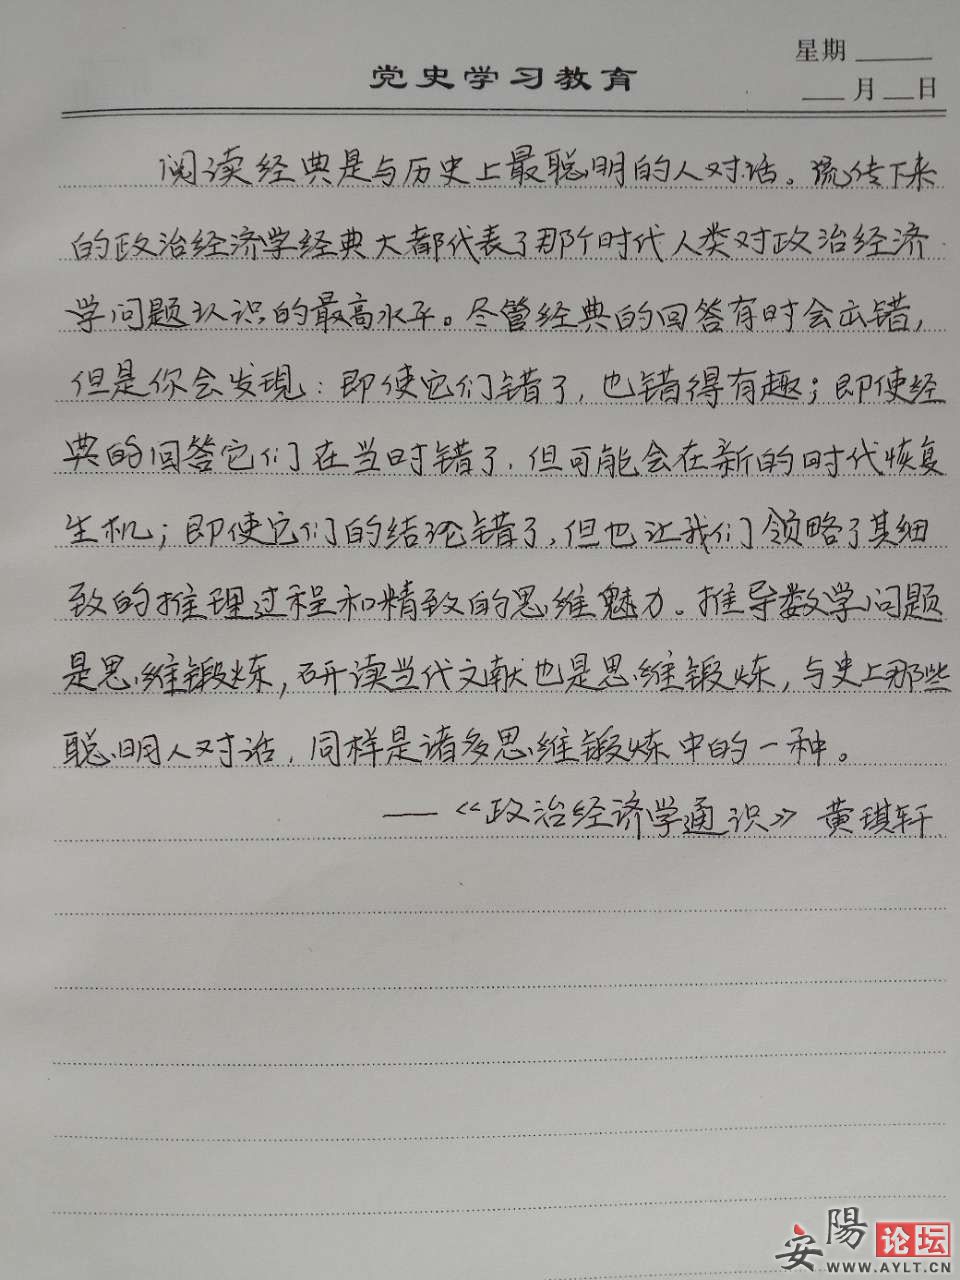 星期
党史学习教育
月 日
阅读经典是与历史上最聪明的人对话。流传下来
的政治经济学经典大都代表了那个时代人类对政治经济
学问题认识的最高水平。尽管经典的回答有时会出错，
但是你会发现：即使它们错了，也错得有趣；即使经
典的回答它们在当时错了，但可能会在新的时代恢复
生机；即使它们的结论错了，但也让我们领略了其细
致的推理过程和精致的思维魅力。推导数学问题
是思维锻炼，研读当代文献也是思维锻炼，与史上那些
聪明人对话，同样是诸多思维锻炼中的一种。
——《政治经济学通识》黄琪轩
安陽论坛
WWW.AYLT.CN